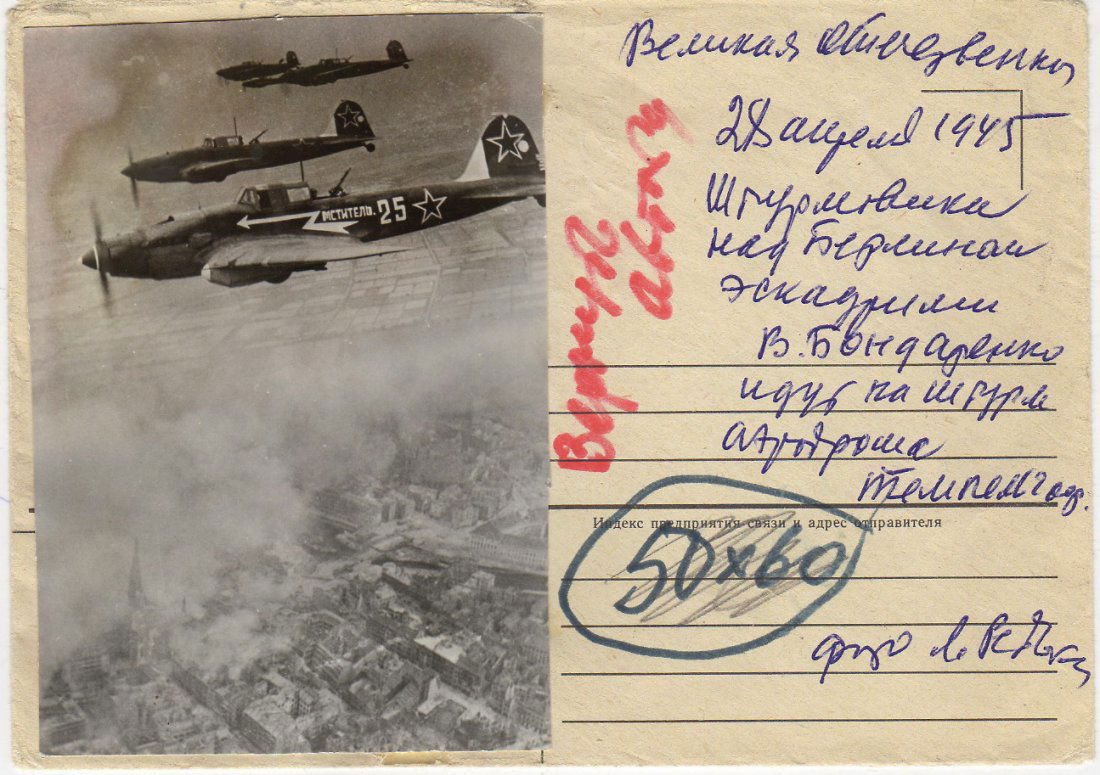 МСТИТЕЛЬ. 25
Великая Отечественная
28 апреля 1945
Штурмовики
над Берлином
эскадрильи
В. Бондаренко
идут на штурм
аэродрома
Темпельгоф.
Вернуть
автору
Индекс предприятия связи и адрес отправителя
50х60
фото